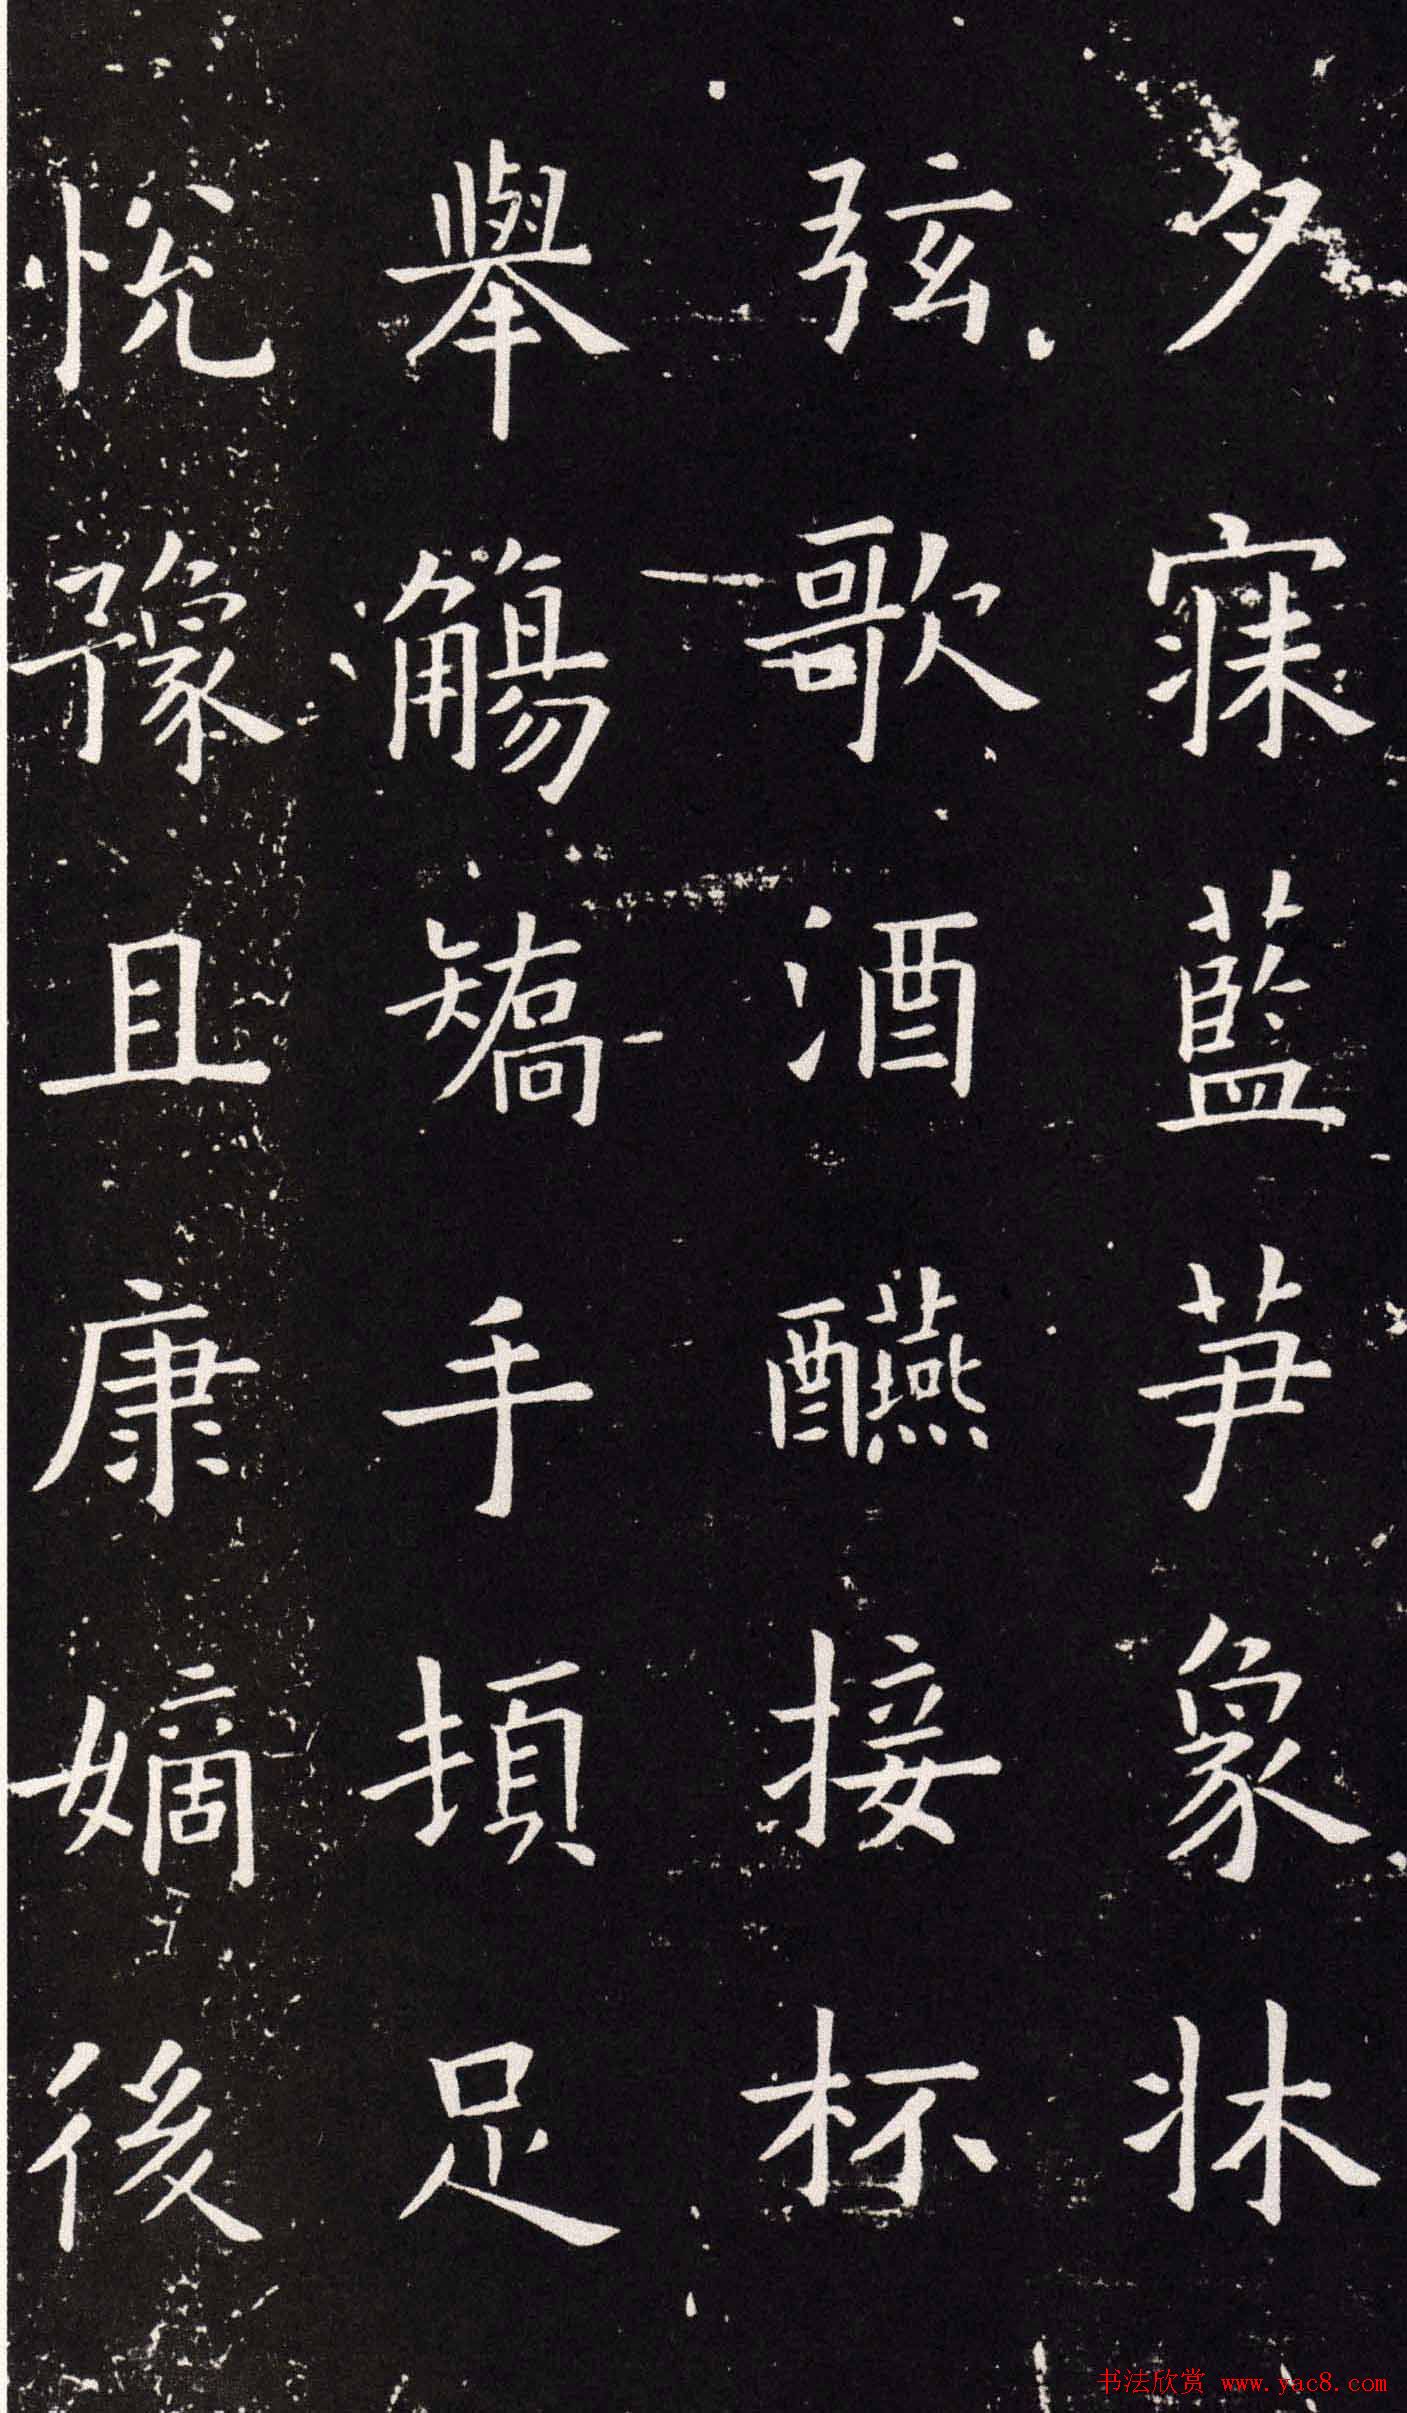 夕寐藍笋象牀
弦歌酒醼接杯
舉觴矯手頓足
悅豫且康嫡後
书法欣赏 www.yac8.com